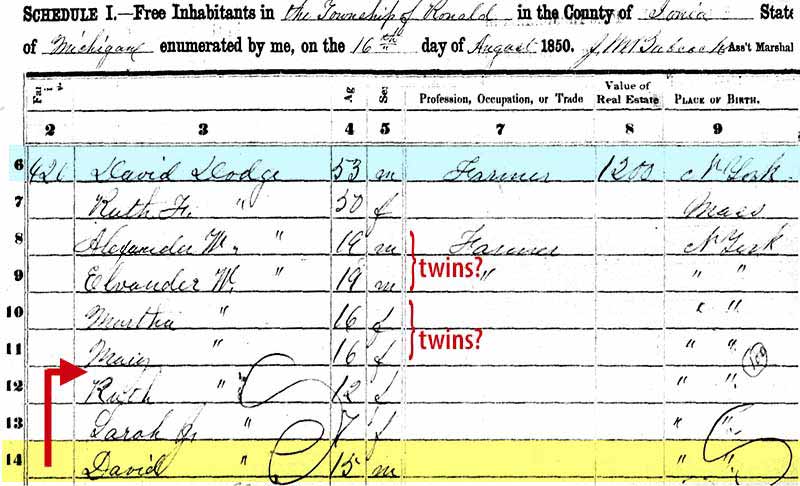 SCHEDULE I.—Free Inhabitants in the Township of Ronald in the County of Ionia State
of Michigan enumerated by me, on the 16th day of August 1850. Ass't Marshal
Ag Sex Profession, Occupation, or Trade Value of Real Estate PLACE OF BIRTH.
2 3 4 5 7 8 9
6 426 David Dodge 53 m Farmer 1200 N York
7 Ruth " 50 f Mass
8 Alexander W. " 19 m Farmer N York
9 Elvander W. " 19 m " " "
twins?
10 Martha " 16 f " "
11 Mary " 16 f " "
twins?
12 Ruth " 12 f " "
13 Sarah J. " 7 f " "
14 David " 15 m " "